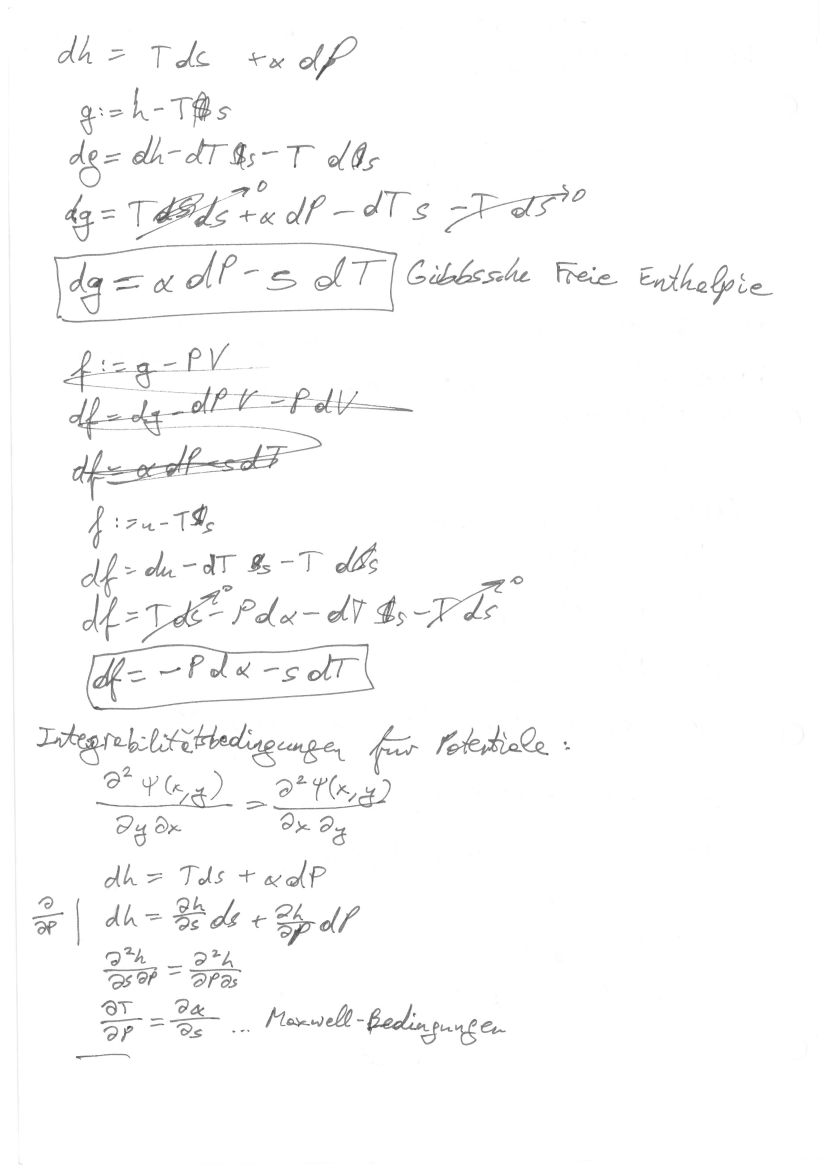 dh = T ds + α dP
g := h - T s
dg = dh - dT s - T ds
dg = T ds + α dP - dT s - T ds
dg = α dP - s dT Gibbssche Freie Enthalpie
f := g - PV
df = dg - dP V - P dV
df = α dP - s dT
f := u - T s
df = du - dT s - T ds
df = T ds - P dα - dT s - T ds
df = - P dα - s dT
Integrabilitätsbedingungen für Potentiale :
∂²Ψ(x,y)/∂y∂x = ∂²Ψ(x,y)/∂x∂y
dh = T ds + α dP
∂/∂P | dh = ∂h/∂s ds + ∂h/∂p dP
∂²h/∂s∂p = ∂²h/∂P∂s
∂T/∂P = ∂α/∂s ... Maxwell-Bedingungen